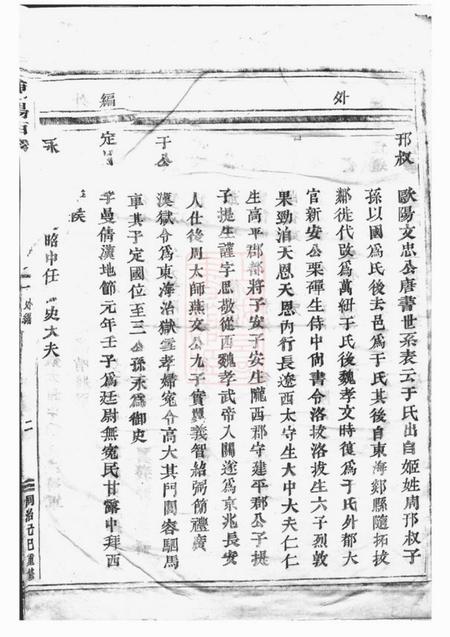 外編
邘叔
歐陽文忠公唐書世系表云于氏出自姬姓周邘叔子
孫以國為氏後去邑為于氏其後自東海郯縣隨拓拔
鄰徙代改為萬紐于氏後魏孝文時復為于氏外都大
官新安公栗磾生侍中尚書令洛拔洛拔生六子烈敦
果勁洎天恩天恩內行長遼西太守生太中大夫仁仁
生高平郡都將子安子安生隴西郡守建平郡公子提
子提生謹字思敬從西魏孝武帝入關遂為京兆長安
人仕後周太師燕文公九子寔翼義智紹弼簡禮廣
于公
漢獄令為東海治獄雪孝婦寃令高大其門閭容駟馬
車其子定國位至三公孫永為御史
定
字曼倩漢地節元年壬子為廷尉無寃民甘露中拜西
侯
永
昭中任 史大夫
外編
二
同治己巳重修